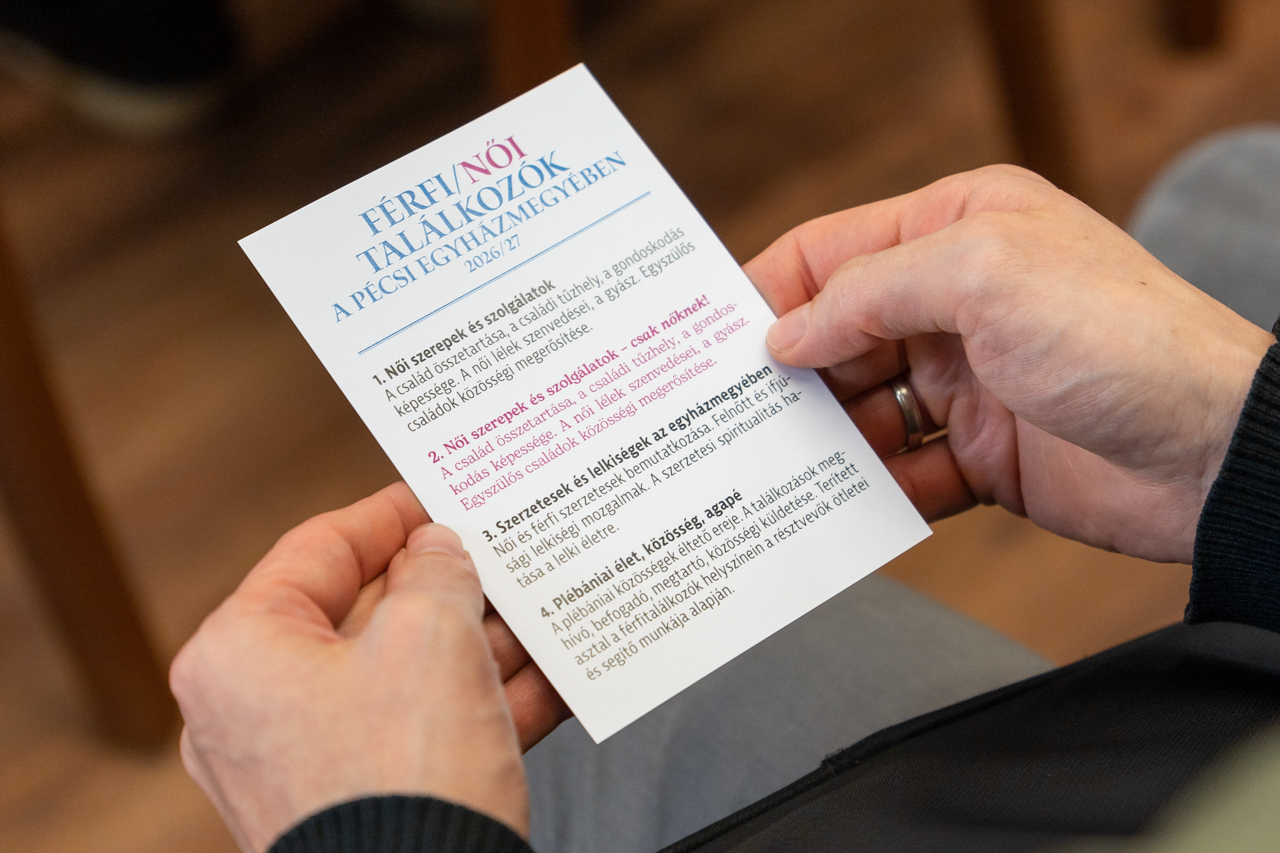 FÉRFI/NŐI
TALÁLKOZÓK
A PÉCSI EGYHÁZMEGYÉBEN
2026/27
1. Női szerepek és szolgálatok
A család összetartása, a családi tűzhely, a gondoskodás
képessége. A női lélek szenvedései, a gyász. Egyszülős
családok közösségi megerősítése.
2. Női szerepek és szolgálatok – csak nőknek!
A család összetartása, a családi tűzhely, a gondos-
kodás képessége. A női lélek szenvedései, a gyász.
Egyszülős családok közösségi megerősítése.
3. Szerzetesek és lelkiségek az egyházmegyében
Női és férfi szerzetesek bemutatkozása. Felnőtt és ifjú-
sági lelkiségi mozgalmak. A szerzetesi spiritualitás ha-
tása a lelki életre.
4. Plébániai élet, közösség, agapé
A plébániai közösségek éltető ereje. A találkozások meg-
hívó, befogadó, megtartó, közösségi küldetése. Terített
asztal a férfitalálkozók helyszínein a résztvevők ötletei
és segítő munkája alapján.